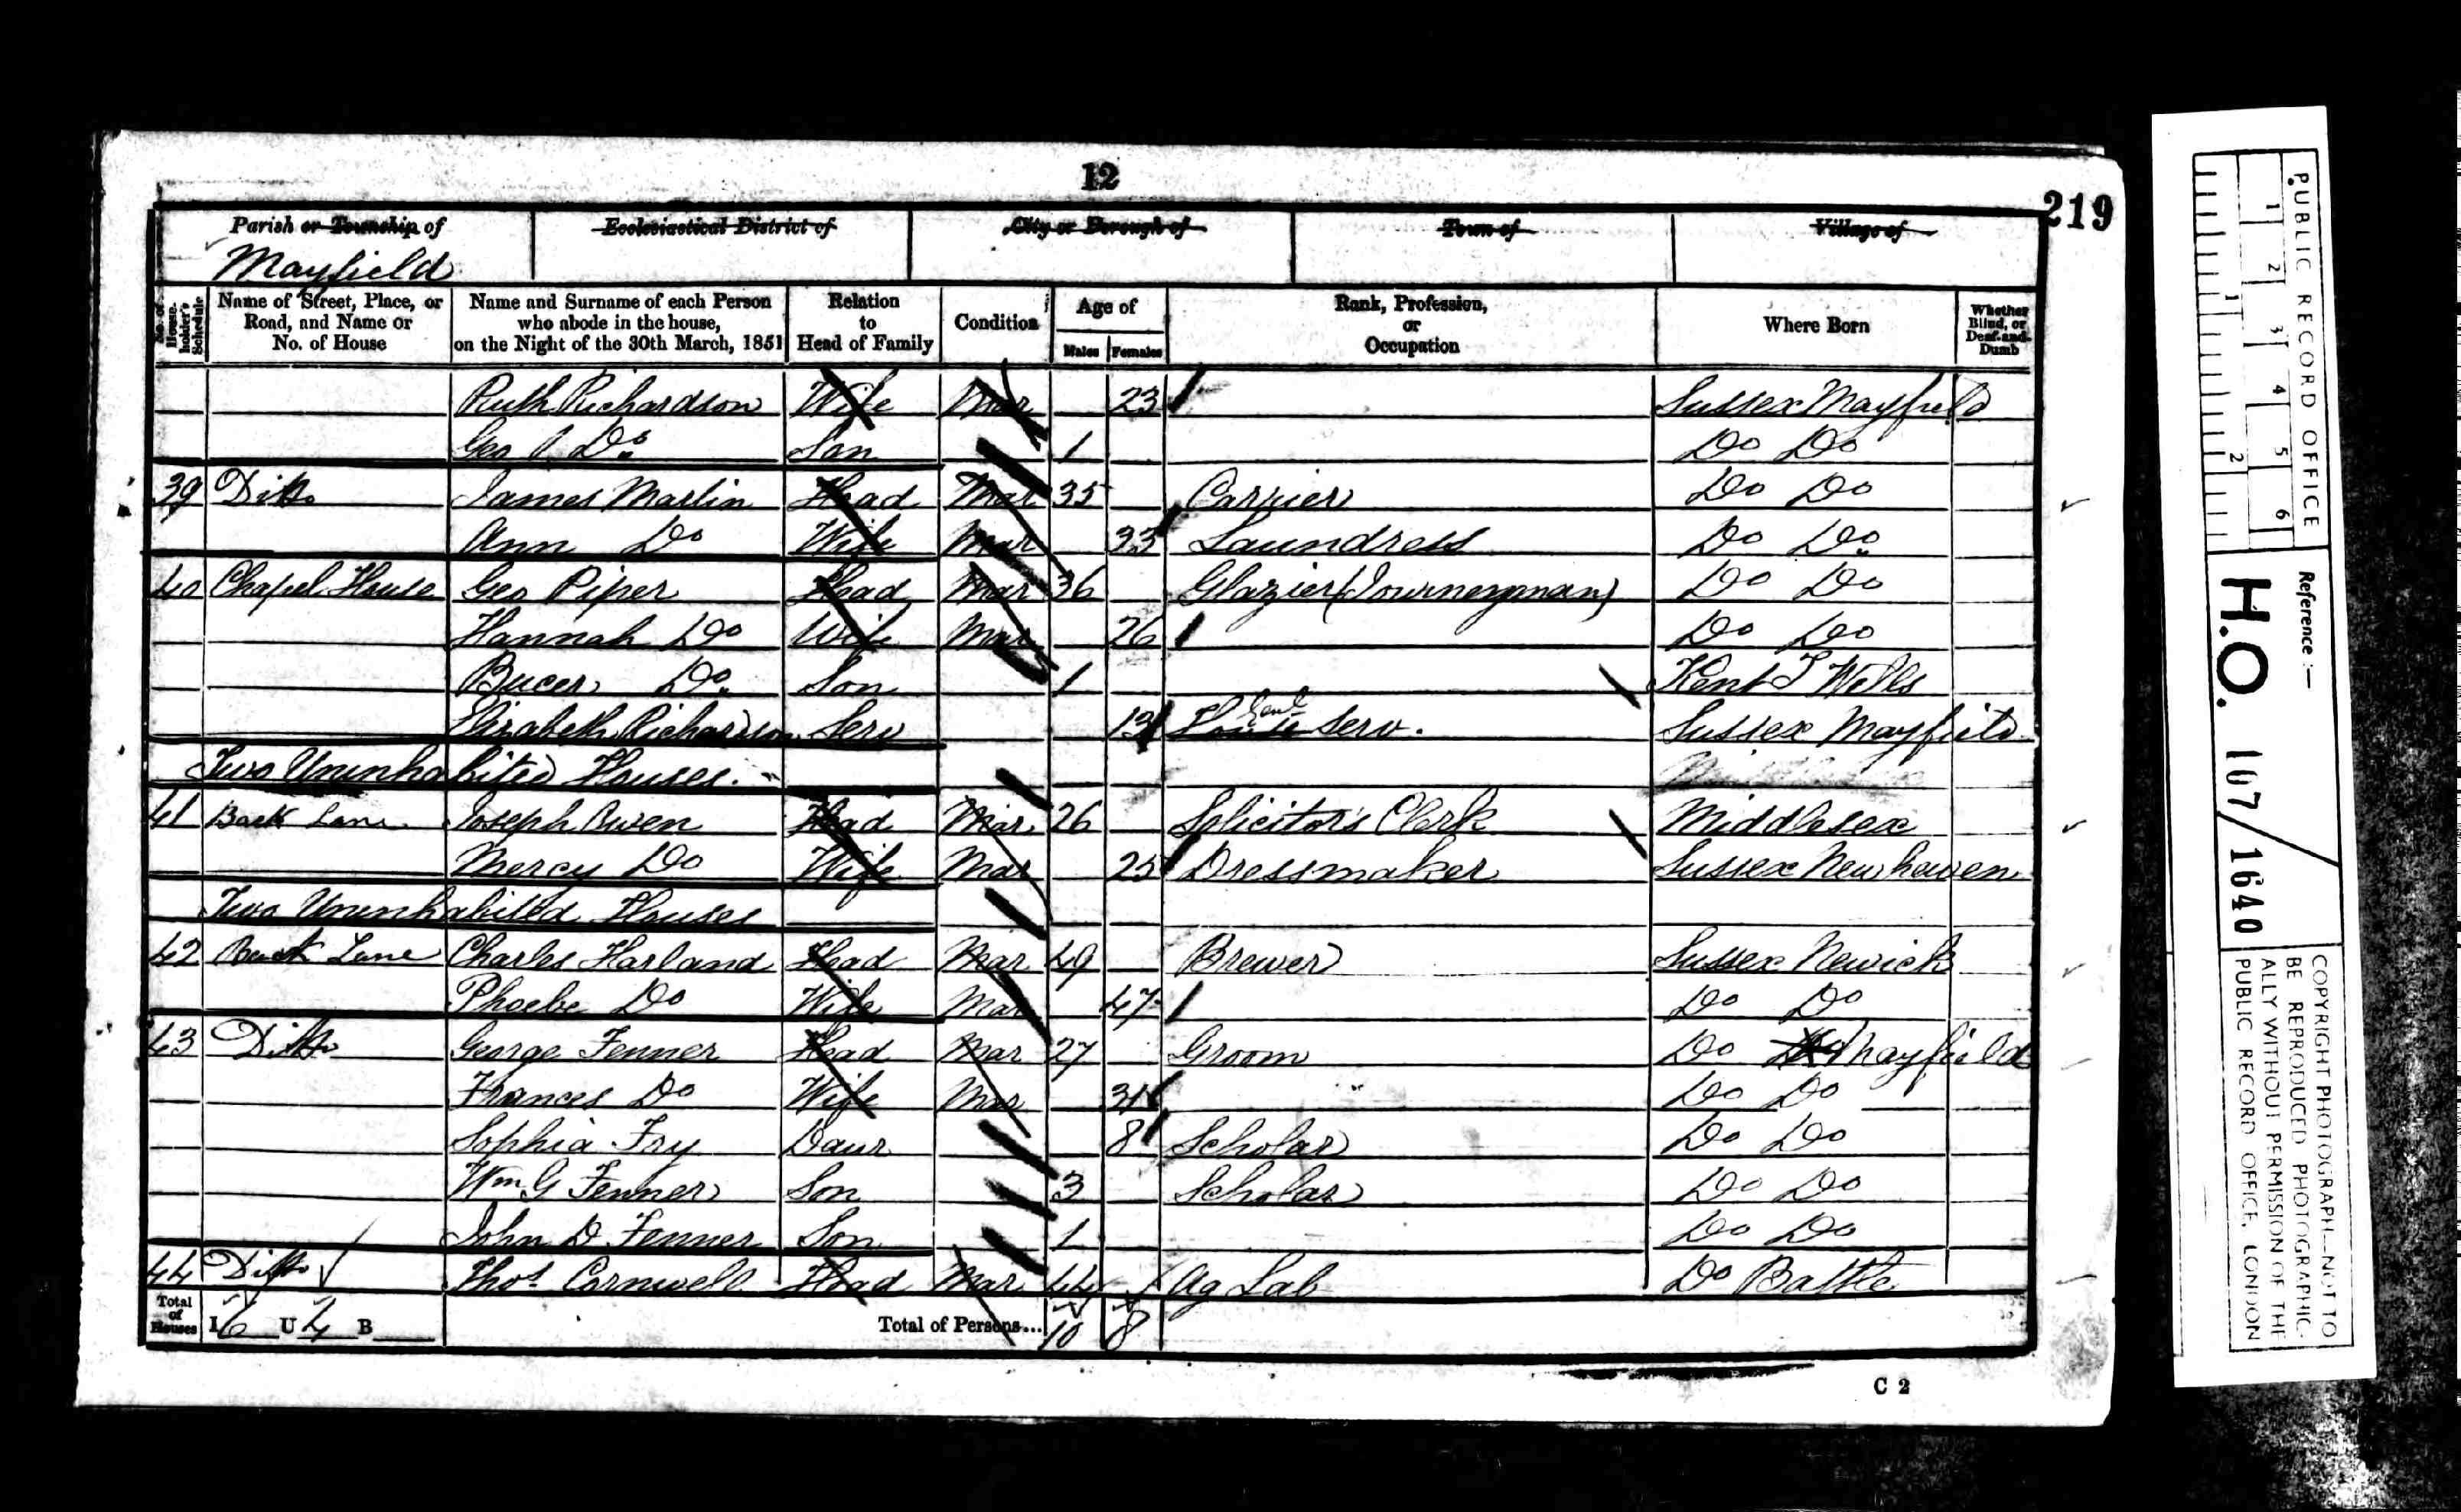 12
219
Parish or Township of
Mayfield
Ecclesiastical District of
City or Borough of
Town of
Village of
No. of House-holder's Schedule
Name of Street, Place, or Road, and Name or No. of House
Name and Surname of each Person who abode in the house, on the Night of the 30th March, 1851
Relation to Head of Family
Condition
Age of
Males Females
Rank, Profession, or Occupation
Where Born
Whether Blind, or Deaf-and-Dumb
Ruth Richardson Wife Mar 23 Sussex Mayfield
Geo Do Son 1 Do Do
39 Ditto James Martin Head Mar 35 Carrier Do Do
Ann Do Wife Mar 33 Laundress Do Do
40 Chapel House Geo Piper Head Mar 36 Glazier (Journeyman) Do Do
Hannah Do Wife Mar 26 Do Do
Bucer Do Son 1 Kent T Wells
Elizabeth Richardson Serv 13 House Genl Serv. Sussex Mayfield
Two Uninhabited Houses.
41 Back Lane Joseph Owen Head Mar 26 Solicitor's Clerk Middlesex
Mercy Do Wife Mar 25 Dressmaker Sussex Newhaven
Two Uninhabited Houses
42 Back Lane Charles Harland Head Mar 49 Brewer Sussex Newick
Phoebe Do Wife Mar 47 Do Do
43 Ditto George Fenner Head Mar 27 Groom Do Do Mayfield
Frances Do Wife Mar 31 Do Do
Sophia Fry Daur 8 Scholar Do Do
Wm G Fenner Son 3 Scholar Do Do
John D Fenner Son 1 Do Do
44 Ditto Thos Cornwell Head Mar 44 Ag Lab Do Battle
Total of Houses I 6 U 4 B
Total of Persons... 10 8
C 2
PUBLIC RECORD OFFICE
1 2 3 4 5 6
1 2
Reference:-
H.O. 107/1640
COPYRIGHT PHOTOGRAPH—NOT TO
BE REPRODUCED PHOTOGRAPHIC-
ALLY WITHOUT PERMISSION OF THE
PUBLIC RECORD OFFICE, LONDON